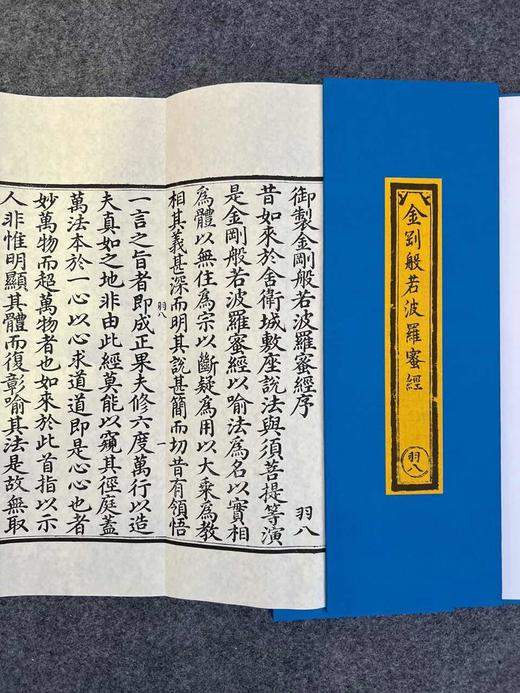 金剛般若波羅蜜經
羽八
御製金剛般若波羅蜜經序 羽八
昔如來於舍衛城敷座說法與須菩提等演
是金剛般若波羅蜜經以喻法爲名以實相
爲體以無住爲宗以斷疑爲用以大乘爲教
相其義甚深而明其說甚簡而切昔有領悟
羽八 一
一言之旨者即成正果夫修六度萬行以造
夫真如之地非由此經莫能以窺其徑庭蓋
萬法本於一心以心求道道即是心心也者
妙萬物而超萬物者也如來於此首指以示
人非惟明顯其體而復彰喻其法是故無取